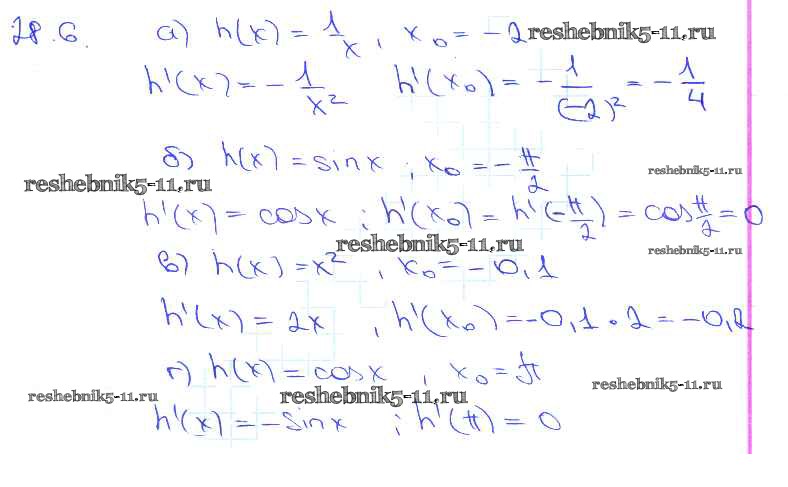 28.6. а) h(x) = 1/x, x₀ = -2 reshebnik5-11.ru
h'(x) = - 1/x² h'(x₀) = - 1/(-2)² = - 1/4
б) h(x) = sinx ; x₀ = - π/2 reshebnik5-11.ru
reshebnik5-11.ru
h'(x) = cosx ; h'(x₀) = h'(-π/2) = cos π/2 = 0
reshebnik5-11.ru reshebnik5-11.ru
в) h(x) = x² , x₀ = -0,1
h'(x) = 2x , h'(x₀) = -0,1 · 2 = -0,2
г) h(x) = cosx , x₀ = π
reshebnik5-11.ru reshebnik5-11.ru reshebnik5-11.ru
h'(x) = -sinx ; h'(π) = 0